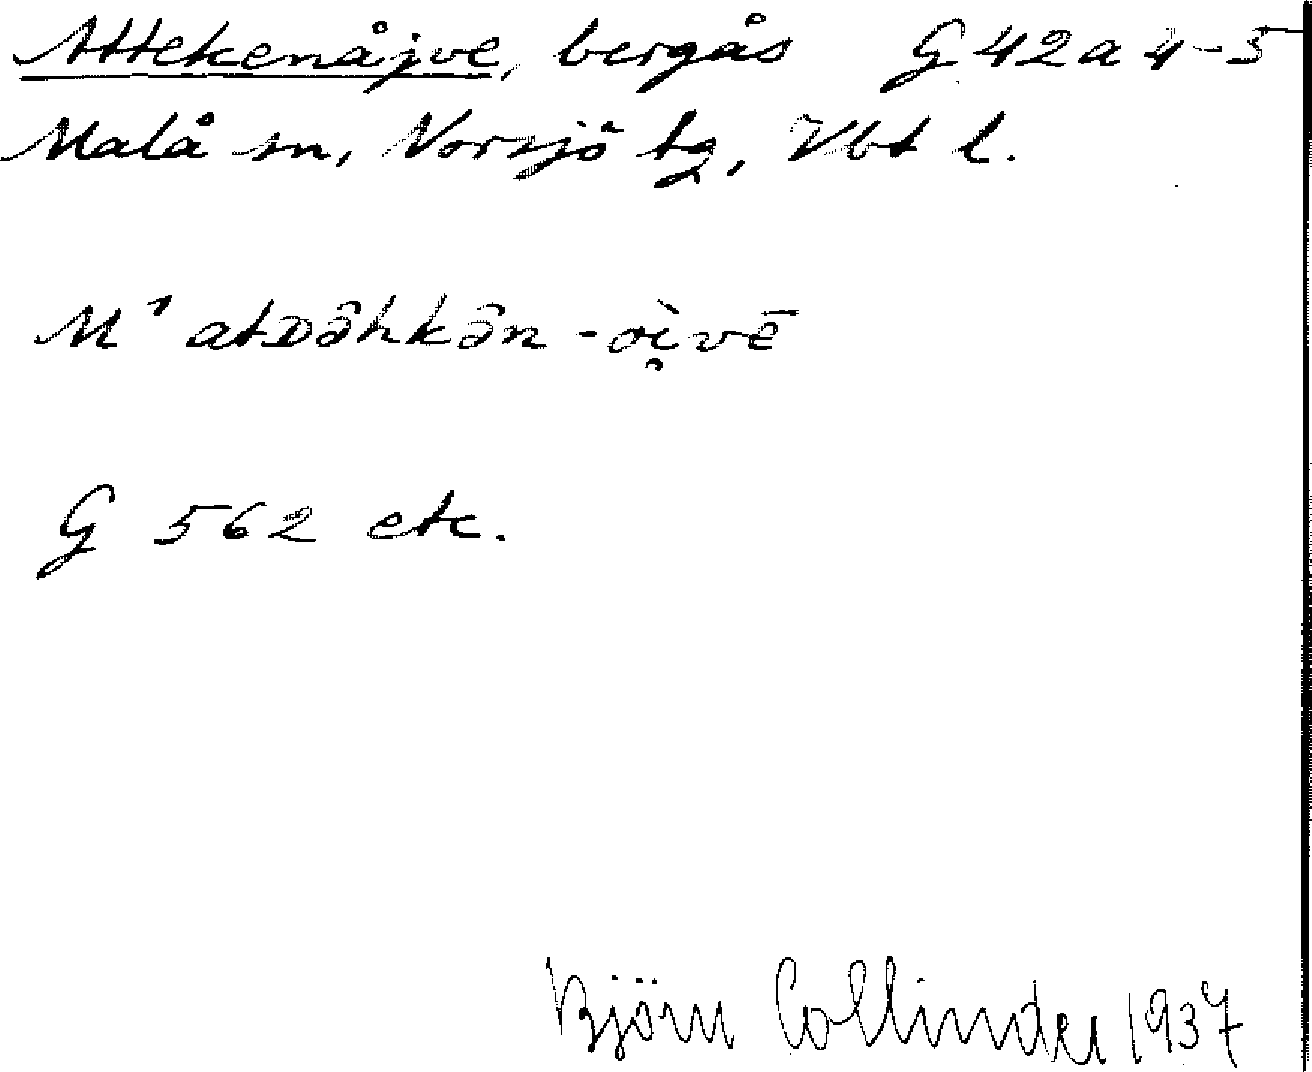 Attekenåjve, bergås G 42 a 4-5
Malå sn, Norsjö tg, Vbt l.
M¹ atᴅâhkân -oì̭vē
G 562 etc.
Björn Collinder 1937